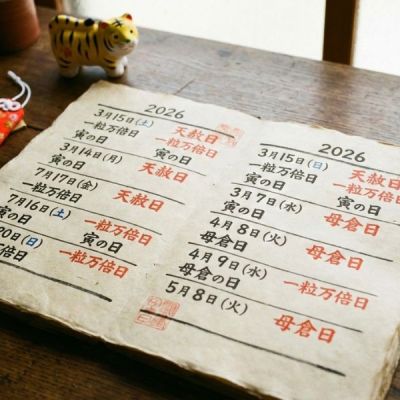 2026
3月15日(土)
天赦日
一粒万倍日
一粒万倍日
寅の日
寅の日
3月14日(月)
天赦日
寅の日
7月17日(金)
天赦日
一粒万倍日
7月16日(土)
一粒万倍日
寅の日
寅の日
20日(日)
一粒万倍日
倍日
2026
3月15日(日)
天赦日
一粒万倍日
一粒万倍日
寅の日
3月7日(水)
母倉日
寅の日
4月8日(火)
母倉日
母倉日
4月9日(水)
一粒万倍日
母倉の日
5月8日(火)
母倉日